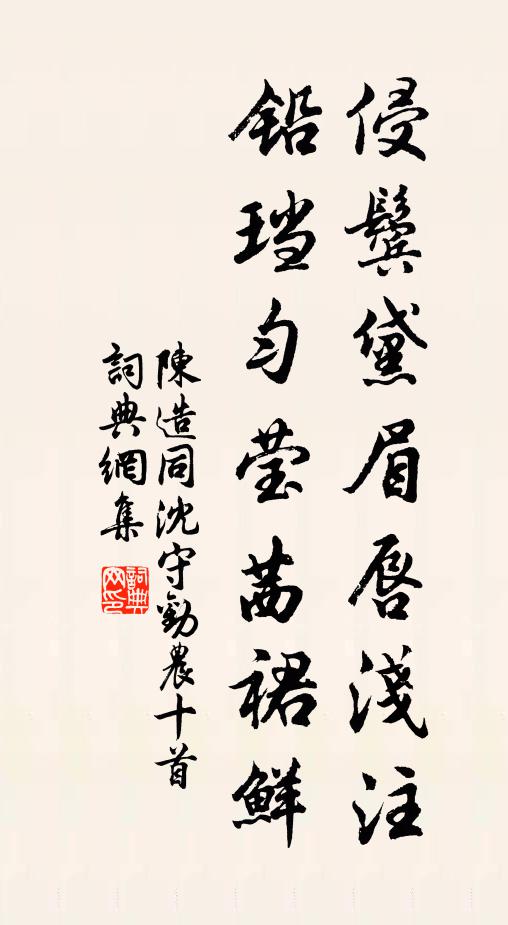 侵鬓黛眉唇淺注
铅珰匀莹茜裙鮮
陳造同沈守勸農十首
詞典網集
詞典網印